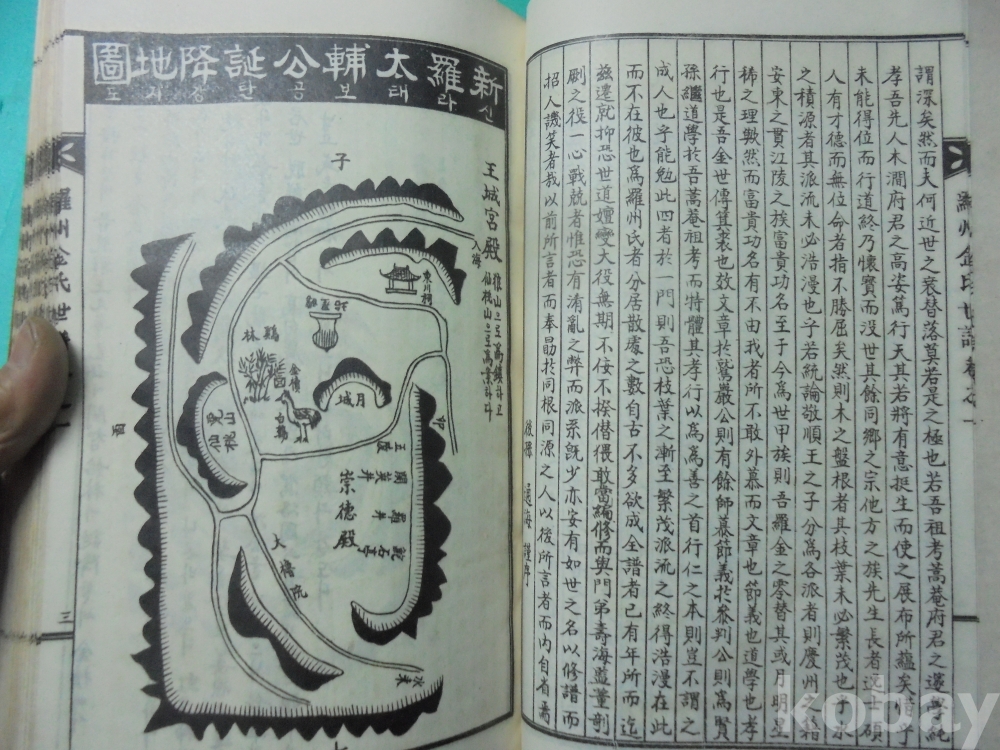 謂深矣然而夫何近世之衰替落莫若是之極也若吾祖考蒿菴府君之邃學純
孝吾先人木澗府君之高姿篤行天其若將有意挺生而使之展布所蘊矣惜乎
未能得位而行道終乃懷寶而沒世其餘同鄉之宗他方之族先生長者逸士碩
人有才德而無位命者指不勝屈矣然則木之盤根者其枝葉未必繁茂也水
之積源者其派流未必浩漫也乎若統論敬順王之子分為各派者則慶州之籍
安東之貫江陵之族富貴功名至于今為世甲族則吾羅金之零替其或月明星
稀之理歟然而富貴功名有不由我者所不敢外慕而文章也節義也道學也孝
行也是吾金世傳箕裘也故文章於鷲巖公則有餘師慕節義於參判公則為賢
孫繼道學於吾蒿菴祖考而特體其孝行以為為善之首行仁之本則豈不謂之
成人也乎能勉此四者於一門則吾恐枝葉之漸至繁茂派流之終得浩漫在此
而不在彼也爲羅州氏者分居散處之數自古不多欲成全譜者已有年所而迄
玆遷就抑恐世道嬗變大役無期不佞不揆僭偎敢當論修而與門弟壽海董剞
劂之役一心戰兢者惟恐有淆亂之弊而派系旣少亦安有如世之名以修譜而
招人譏笑者哉以前所言者而奉勗於同根同源之人以後所言者而內自省焉
後孫 海 謹序
羅州金氏世譜 卷之一
新羅太輔公誕降地圖
신라태보공탄강지도
子
王城宮殿
入海
東川祠
鷄林
金櫃
白鷄
月城
仙桃山
王陵
羅井
崇德殿
大橋
羅州金氏世譜
三
kobay